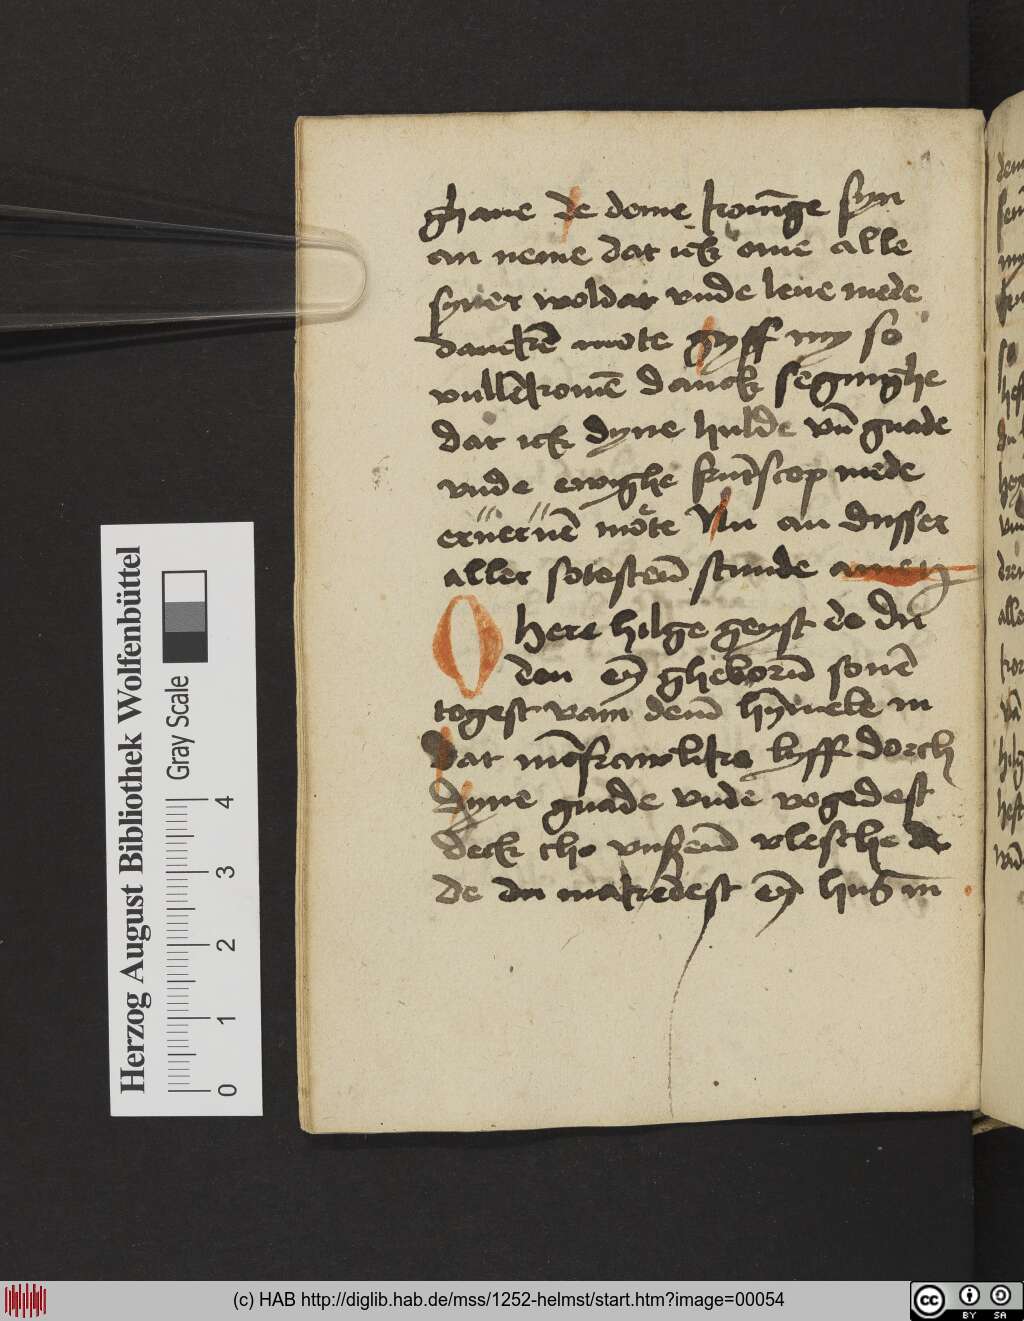 ghaue de deme konīge syn
an neme dat ick ome alle
syner woldat vnde leue mede
dancken mote gyff my so
vullēkomē danck seginghe
dat ick dyne hulde vn̄ gnade
vnde ewighe frūtscop mede
eruernē mote Vn an dusser
aller sotesten̄ stunde amen
O here hilge geyst de du
den eȳ gheborn̄ sonē
togest vam dem̄ hȳmele in
dat iūcfrawlike lyff dorch
dyne gnade vnde vogedest
deck tho vnsem̄ vlesche
de du makedest eȳ hus in
Herzog August Bibliothek Wolfenbüttel
Gray Scale
0 1 2 3 4
(c) HAB http://diglib.hab.de/mss/1252-helmst/start.htm?image=00054
cc BY SA